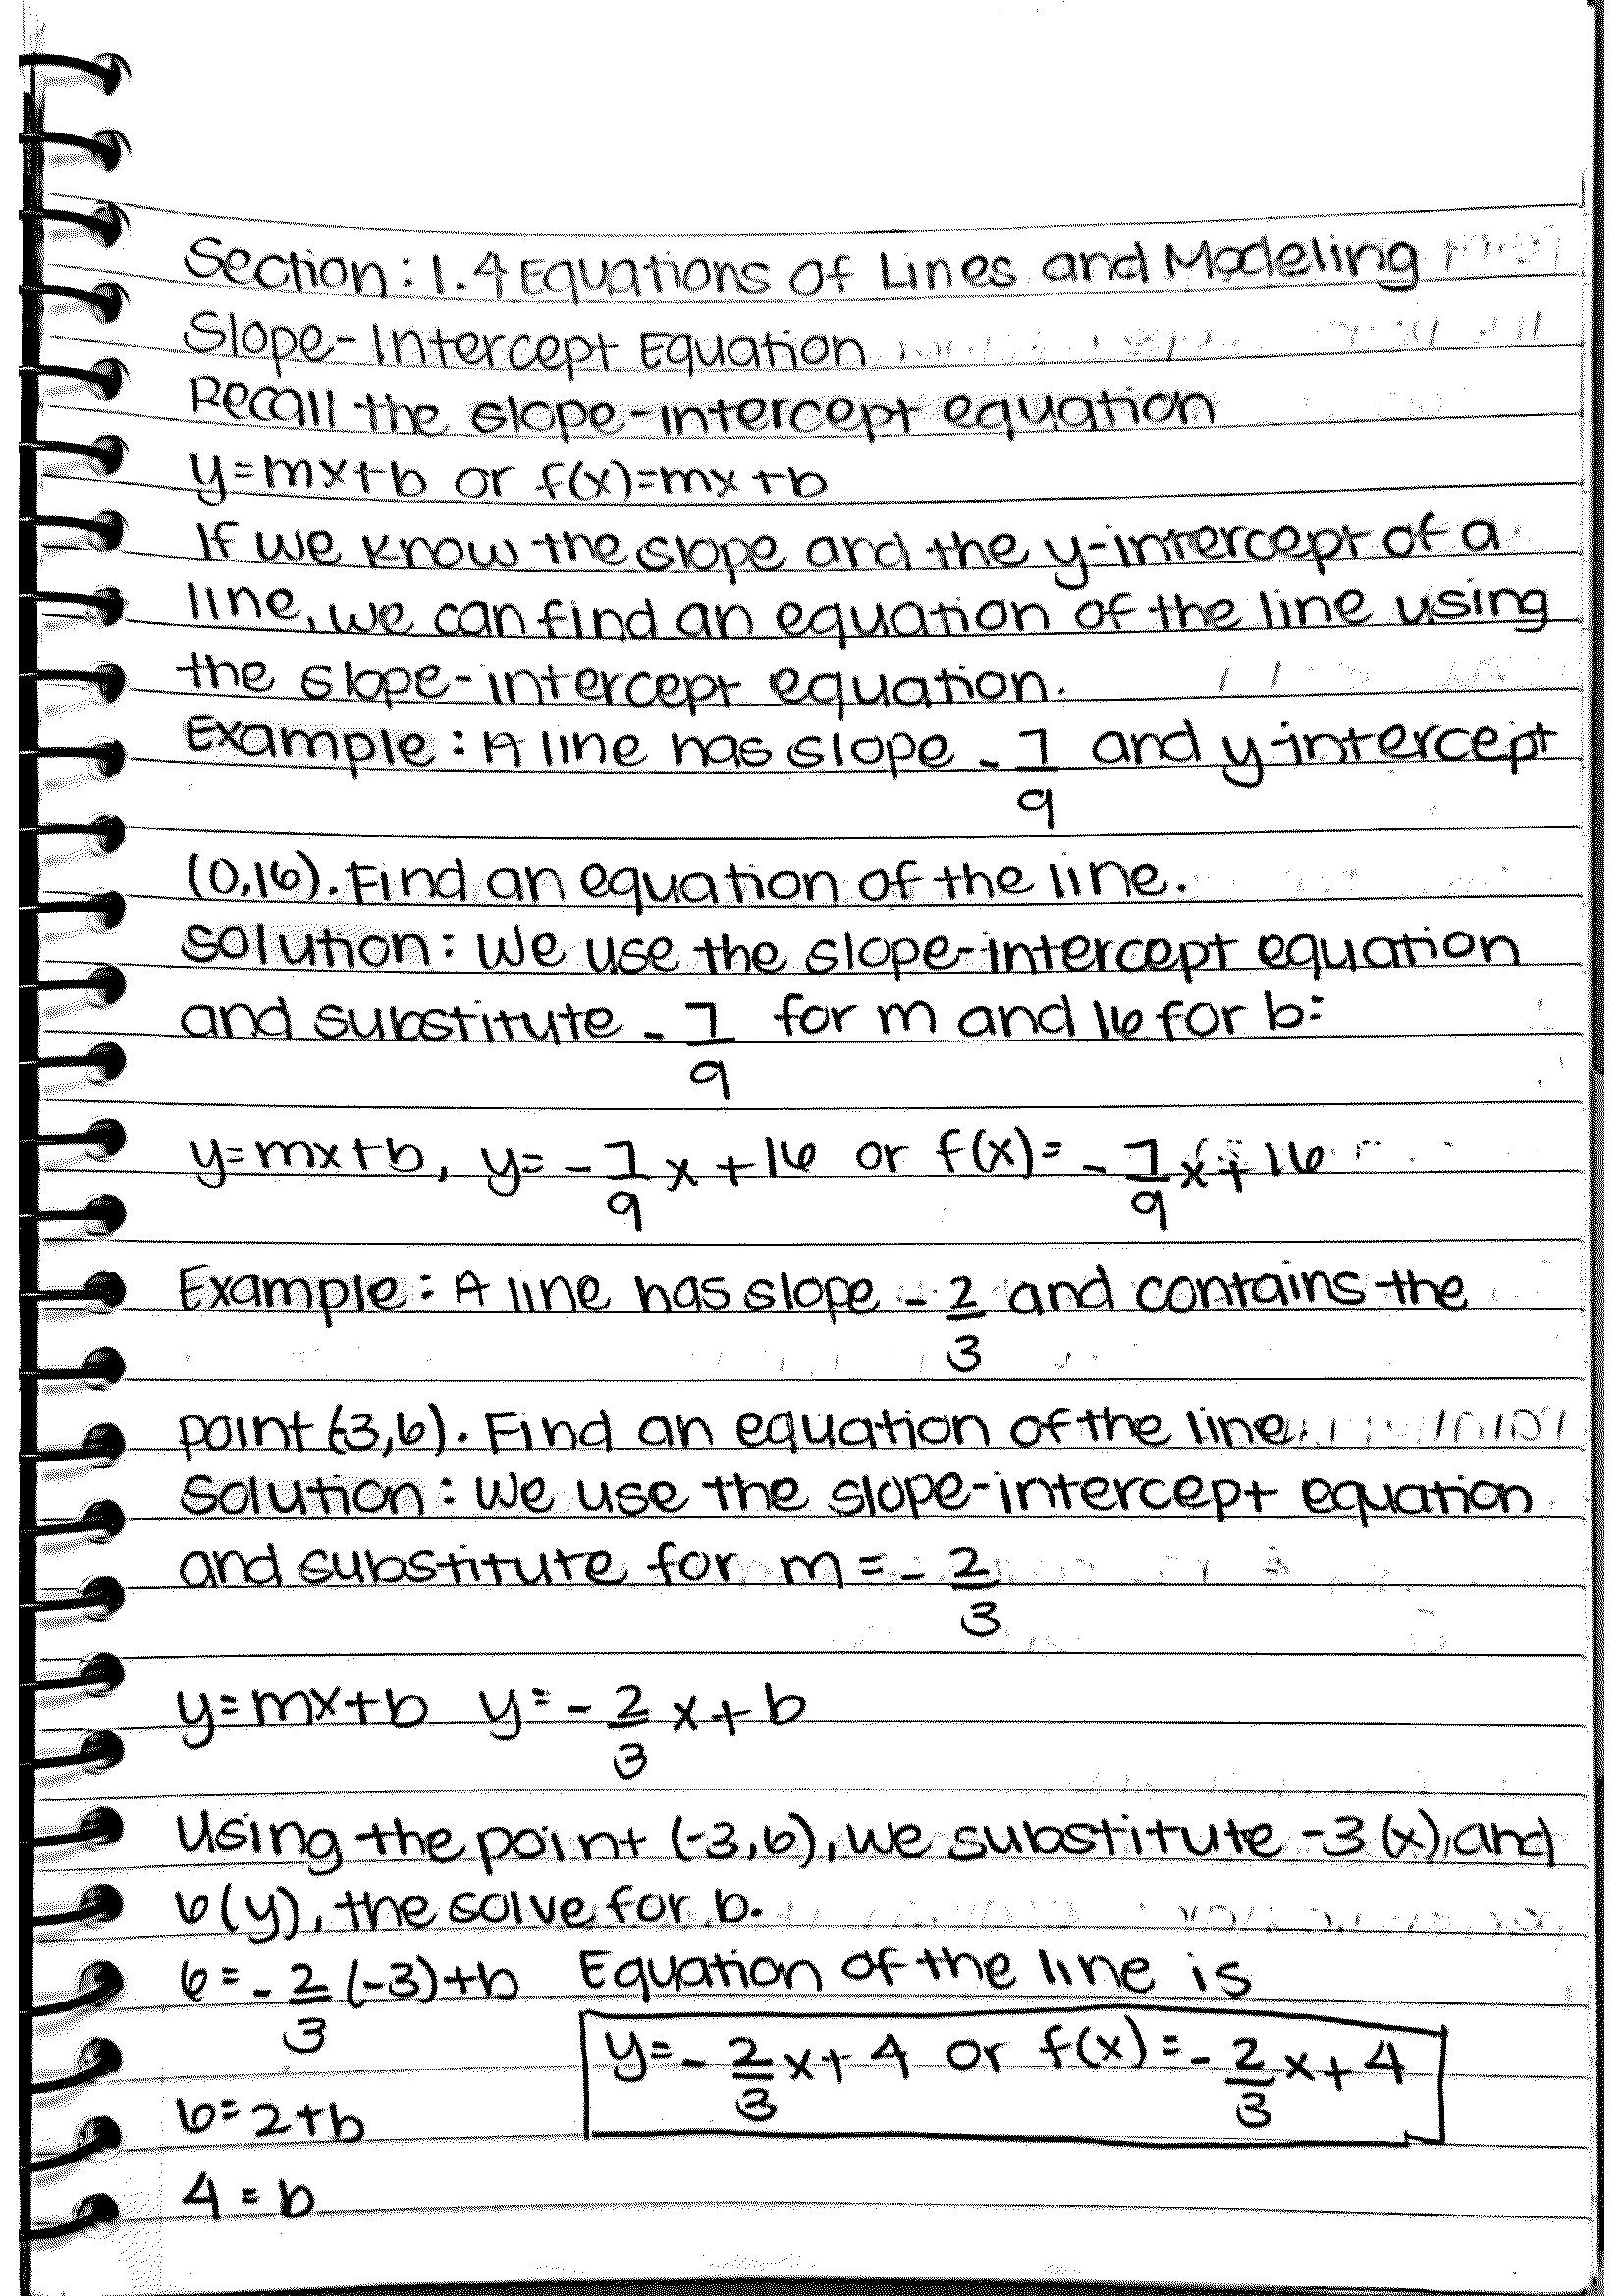 Section: 1.4 Equations of Lines and Modeling
Slope-Intercept Equation
Recall the slope-intercept equation
y=mx+b or f(x)=mx+b
If we know the slope and the y-intercept of a
line, we can find an equation of the line using
the slope-intercept equation.
Example: A line has slope -7/9 and y-intercept
(0,16). Find an equation of the line.
Solution: We use the slope-intercept equation
and substitute -7/9 for m and 16 for b:
y=mx+b, y= -7/9 x + 16 or f(x)= -7/9 x + 16
Example: A line has slope -2/3 and contains the
point (-3,6). Find an equation of the line
Solution: We use the slope-intercept equation
and substitute for m = -2/3
y=mx+b y= -2/3 x + b
Using the point (-3,6), we substitute -3 (x), and
6(y), the solve for b.
6= -2/3 (-3)+b Equation of the line is
y= -2/3 x + 4 or f(x)= -2/3 x + 4
6=2+b
4=b